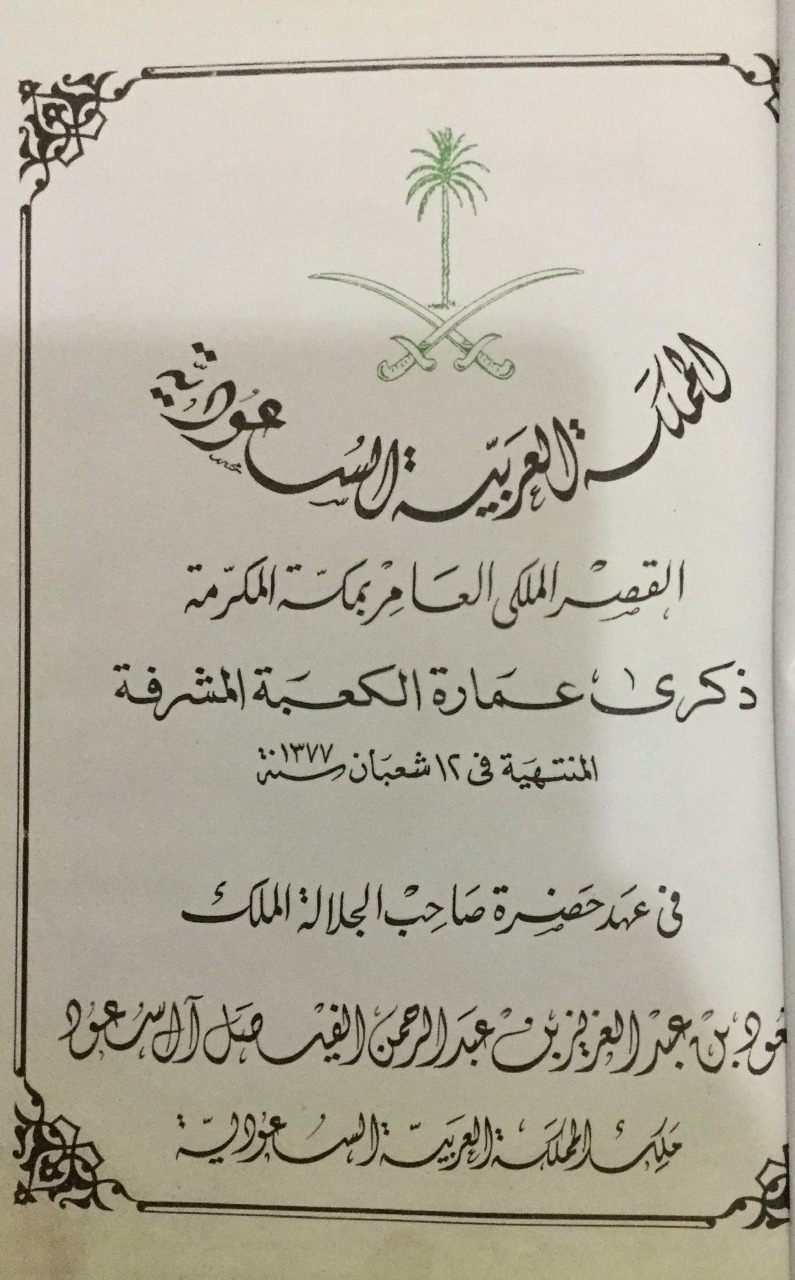 المملكة العربيّة السُعُوديّة
القصْر الملكي العَامِرْ بمكّة المكرّمة
ذكرى عمَارة الكعبَة المشرفة
المنتهيَة في ١٢ شعبَان سنة ١٣٧٧
في عهد حضرة صَاحِبْ الجلالة الملك
عُود بنْ عبْد العزيز بنْ عبَد الرحمنْ الفيصَل آل سعُود
مَلِك المملكَة العربيّة السعُوديّة